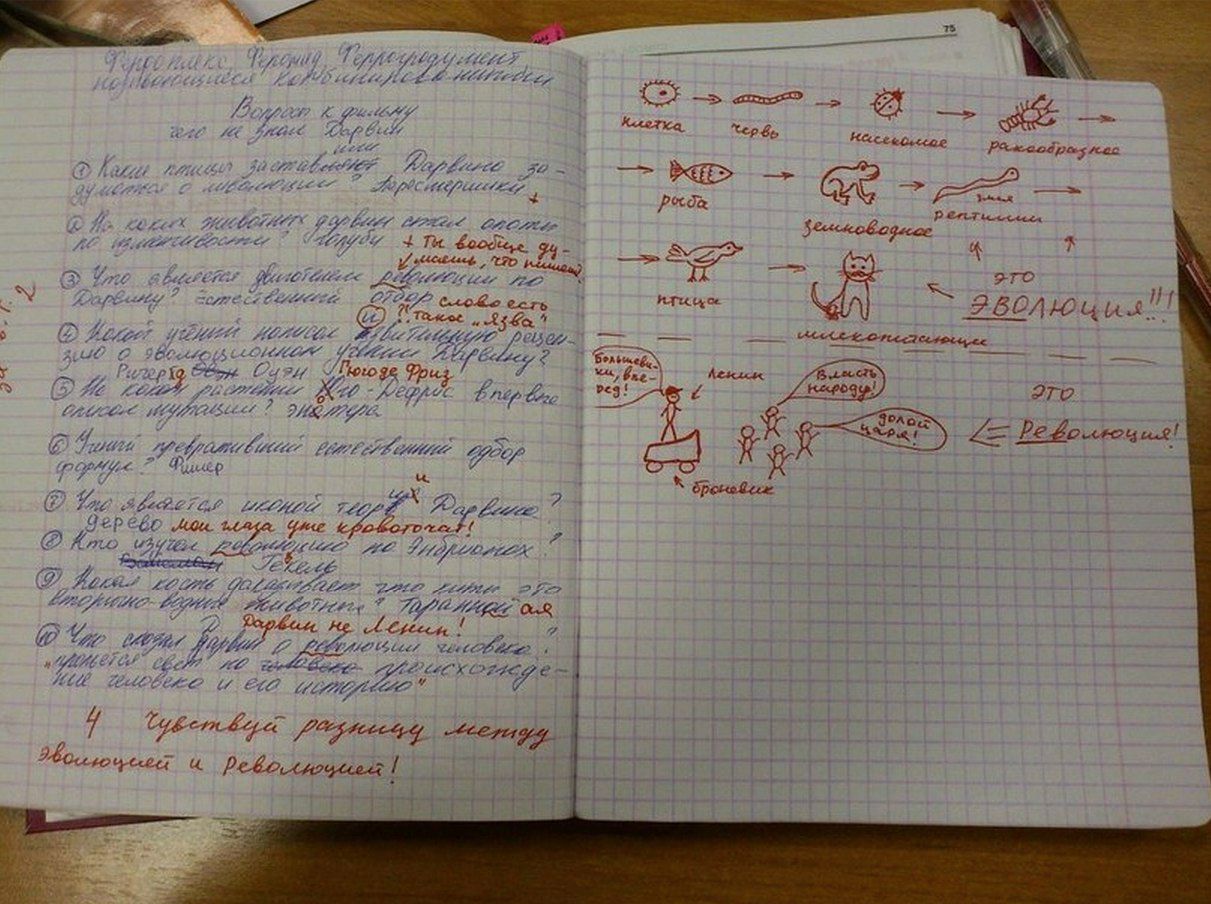 75
Вопросы к фильму
чего не знал Дарвин
① Какие птицы заставили
заставляют Дарвина за-
думатся о эволюции?
+
② На каких животных дарвин ставил опоты
по изменчивости? голуби + Ты вообще ду-
маешь, что пишешь?
③ Что является двигателем революции по
Дарвину? естественный отбор слово есть
такое „язва"
④ Какой учёный написал рецен-
зию о эволюционном учении Дарвину?
Ричард Оуэн Гюго де Фриз
⑤ На каком растении Гюго-Дефриз впервые
описал мутации? энотера
⑥ Учёный превративший естественный одбор
формулу? Фишер
⑦ Что является иконой теории Дарвина?
дерево мои глаза уже кровоточат!
⑧ Кто изучал революцию по Энбриотах?
Геккель
⑨ Какая кость доказывает что киты это
вторично-водная животныи? таранной ая
Дарвин не Ленин!
⑩ Что сказал Дарвин о революции человека?
„прольется свет на человека происхожде-
ние человека и его историю"
4 Чувствуй разницу между
эволюцией и Революцией!
2
клетка червь насекомое ракообразное
рыба земноводное змея рептилии
птица млекопитающие
это
ЭВОЛЮЦИЯ!!!
Большеви-
ки, впе-
ред!
Ленин
Власть
народу!
долой
царя!
броневик
это
Революция!